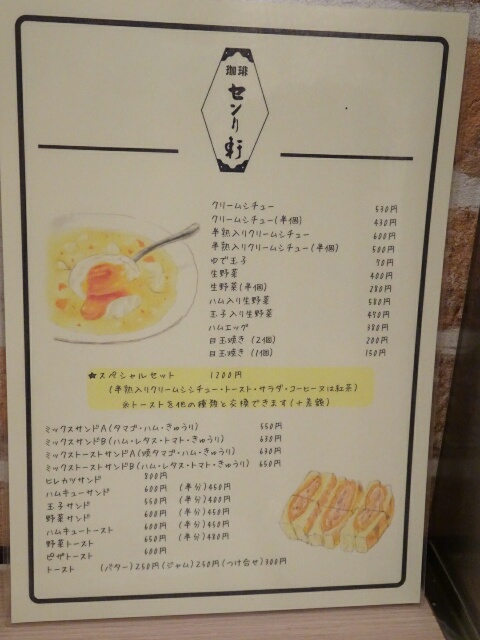 珈琲
センリ軒
クリームシチュー 530円
クリームシチュー(半個) 430円
半熟入りクリームシチュー 600円
半熟入りクリームシチュー(半個) 500円
ゆで玉子 70円
生野菜 400円
生野菜(半個) 280円
ハム入り生野菜 580円
玉子入り生野菜 470円
ハムエッグ 380円
目玉焼き (2個) 200円
目玉焼き (1個) 130円
★スペシャルセット 1200円
(半熟入りクリームシチュー・トースト・サラダ・コーヒー又は紅茶)
※トーストを他の種類と交換できます(+差額)
ミックスサンドA(タマゴ・ハム・きゅうり) 550円
ミックスサンドB(ハム・レタス・トマト・きゅうり) 630円
ミックストーストサンドA(焼タマゴ・ハム・きゅうり) 630円
ミックストーストサンドB(ハム・レタス・トマト・きゅうり) 650円
ヒレカツサンド 800円
ハムキューサンド 600円 (半分)450円
玉子サンド 550円 (半分)400円
野菜サンド 600円 (半分)450円
ハムキュートースト 600円 (半分)450円
野菜トースト 650円 (半分)480円
ピザトースト 600円
トースト (バター)250円(ジャム)250円(つけ合せ)300円